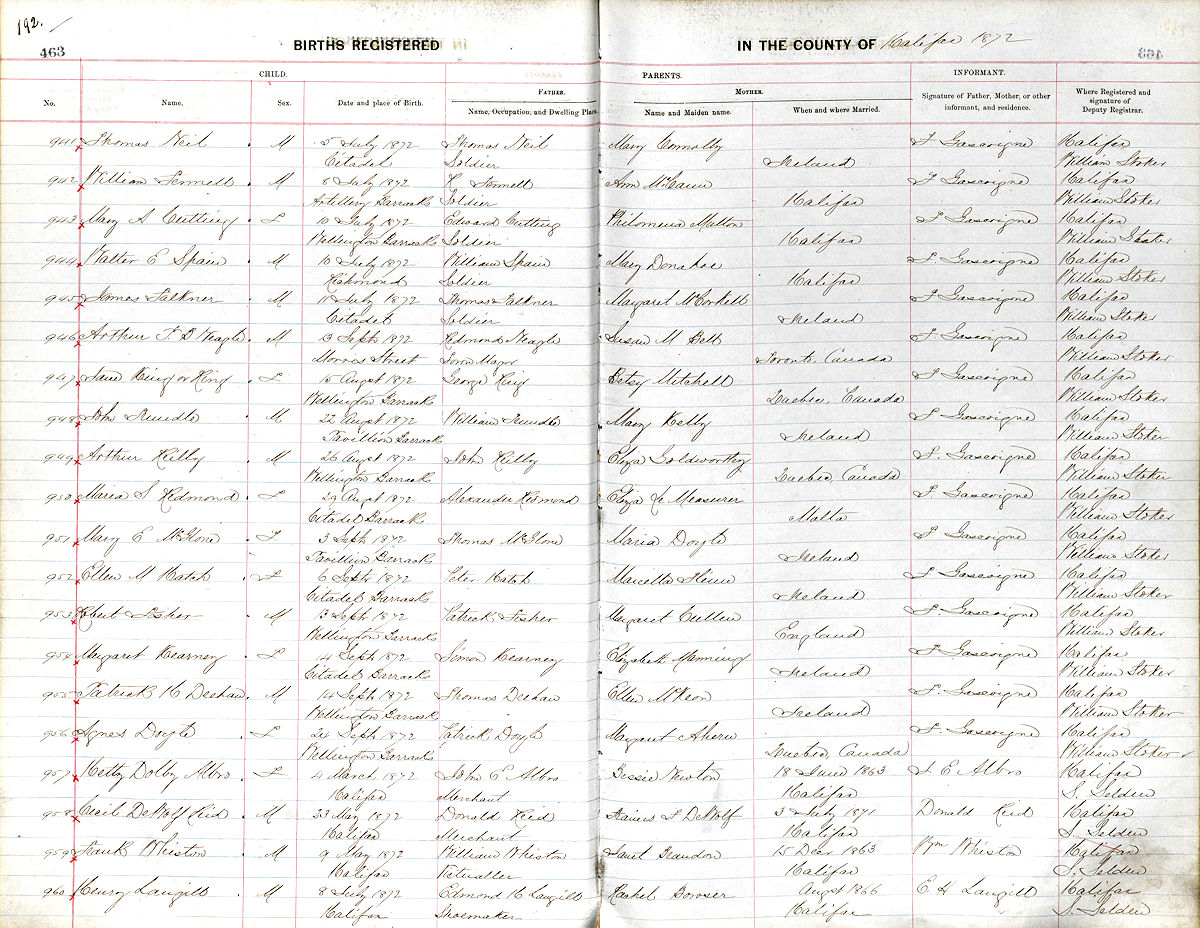 192.
463
BIRTHS REGISTERED IN THE COUNTY OF Halifax 1872
CHILD. PARENTS. INFORMANT.
FATHER. MOTHER.
No. Name. Sex. Date and place of Birth. Name, Occupation, and Dwelling Place. Name and Maiden name. When and where Married. Signature of Father, Mother, or other informant, and residence. Where Registered and signature of Deputy Registrar.
941 Thomas Neil M 5 July 1872 Thomas Neil Mary Connolly F Gascoigne Halifax
Citadel Soldier Ireland William Stoker
942 William Fennell M 8 July 1872 Fennell Ann McCann F Gascoigne Halifax
Artillery Barracks Soldier Halifax William Stoker
943 Mary A Cutting F 10 July 1872 Edward Cutting Philomena Malton F Gascoigne Halifax
Wellington Barracks Soldier Halifax William Stoker
944 Walter E Spain M 10 July 1872 William Spain Mary Donahoe F Gascoigne Halifax
Richmond Soldier Halifax William Stoker
945 James Falkner M 11 July 1872 Thomas Falkner Margaret McCorkell F Gascoigne Halifax
Citadel Soldier Ireland William Stoker
946 Arthur F B Neagle M 13 Septr 1872 Redmond Neagle Susan M Bell F Gascoigne Halifax
Morris Street Town Major Toronto, Canada William Stoker
947 Jane King or Ring F 15 Augst 1872 George King Betsy Mitchell F Gascoigne Halifax
Wellington Barracks Quebec, Canada William Stoker
948 John Trundle M 22 Augst 1872 William Trundle Mary Kelly F Gascoigne Halifax
Pavillion Barracks Ireland William Stoker
949 Arthur Hilby M 26 Augst 1872 John Hilby Eliza Goldsworthy F. Gascoigne Halifax
Wellington Barracks Quebec Canada William Stoker
950 Maria S Redmond F 29 Augst 1872 Alexander Redmond Eliza Le Measurer F Gascoigne Halifax
Citadel Barracks Malta William Stoker
951 Mary E McGlone F 3 Septr 1872 Thomas McGlone Maria Doyle F Gascoigne Halifax
Pavillion Barracks Ireland William Stoker
952 Ellen M Hatch F 6 Septr 1872 Peter Hatch Marcella F Gascoigne Halifax
Citadel Barracks Ireland William Stoker
953 Robert Fisher M 13 Septr 1872 Patrick Fisher Margaret Cullen F Gascoigne Halifax
Wellington Barracks England William Stoker
954 Margaret Kearney F 14 Septr 1872 Simon Kearney Elizabeth Manning F Gascoigne Halifax
Citadel Barracks Ireland William Stoker
955 Patrick H Deehan M 14 Septr 1872 Thomas Deehan Ellen McKeon F Gascoigne Halifax
Wellington Barracks Ireland William Stoker
956 Agnes Doyle F 24 Septr 1872 Patrick Doyle Margaret Ahern F Gascoigne Halifax
Wellington Barracks Quebec, Canada William Stoker
957 Hetty Dolby Albro F 4 March 1872 John E Albro Bessie Newton 18 June 1863 J. E Albro Halifax
Halifax Merchant Halifax S. Selden
958 Cecil DeWolf Reid M 23 May 1872 Donald Reid DeWolf 3 July 1871 Donald Reid Halifax
Halifax Merchant Halifax S. Selden
959 Frank Whiston M 9 May 1872 William Whiston Janet Beandon 15 Decr 1863 Wm Whiston Halifax
Halifax Victualler Halifax S. Selden
960 Henry Langill M 8 July 1872 Edmond H Langill Rachel Bowser Augst 1866 E H Langill Halifax
Halifax Shoemaker Halifax S. Selden